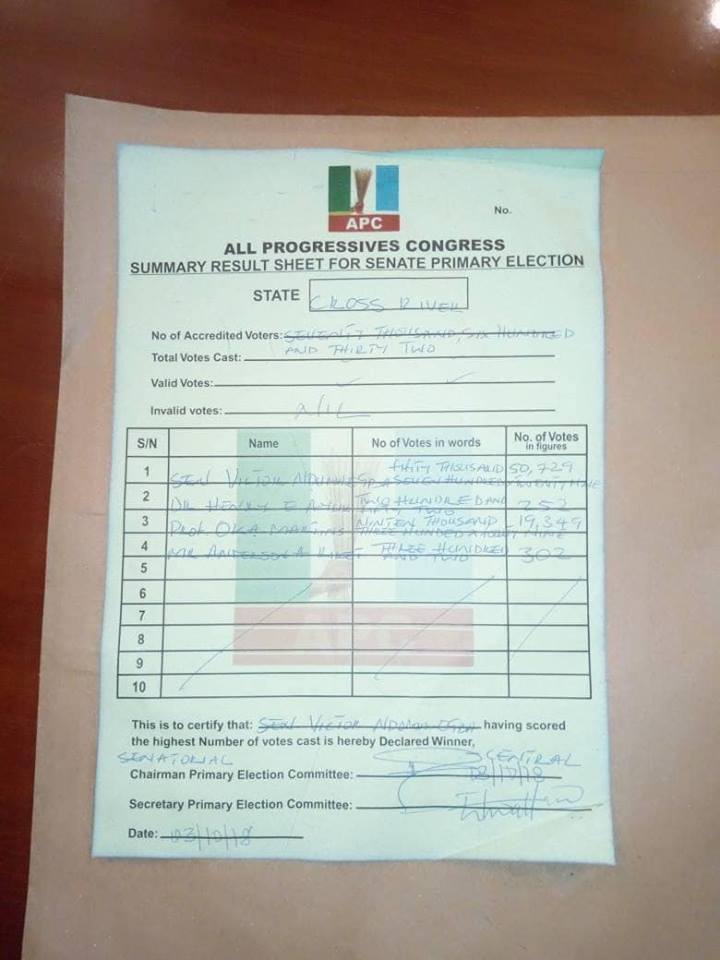 APC
No.
ALL PROGRESSIVES CONGRESS
SUMMARY RESULT SHEET FOR SENATE PRIMARY ELECTION
STATE CROSS RIVER
No of Accredited Voters: SEVENTY THOUSAND, SIX HUNDRED
Total Votes Cast: AND THIRTY TWO
Valid Votes:
Invalid votes: NIL
S/N Name No of Votes in words No. of Votes in figures
1 FIFTY THOUSAND 50,729
SEN VICTOR NDOMA EGBA SEVEN HUNDRED TWENTY NINE
2 DR HENRY E TWO HUNDRED AND 252
FIFTY TWO
3 NINTEEN THOUSAND 19,349
PROF. OKA MARTINS THREE HUNDRED NINE
4 MR ANDERSON A THREE HUNDRED 302
AND TWO
5
6
7
8
9
10
APC
This is to certify that: SEN VICTOR NDOMA EGBA having scored
the highest Number of votes cast is hereby Declared Winner,
SENATORIAL CENTRAL
Chairman Primary Election Committee: 03/10/18
Secretary Primary Election Committee:
Date: 03/10/18